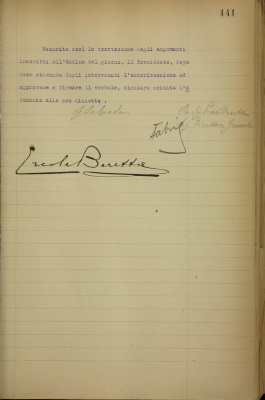 141
Esaurita così la trattazione degli argomenti
inscritti all'Ordine del giorno, il Presidente, dopo
aver ottenuto dagli intervenuti l'autorizzazione ad
approvare e firmare il verbale, dichiara sciolta l'a
dunanza alle ore diciotto .
Presidente
Direttore
Ercole Beretta